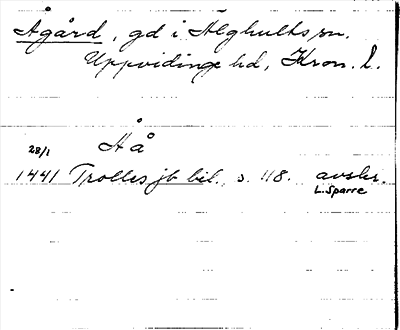 Ågård, gd i Älghults sn.
Uppvidinge hd, Kron. l.
Hå
28/1
1441 Trolles jb bil., s. 118. avskr.
L. Sparre